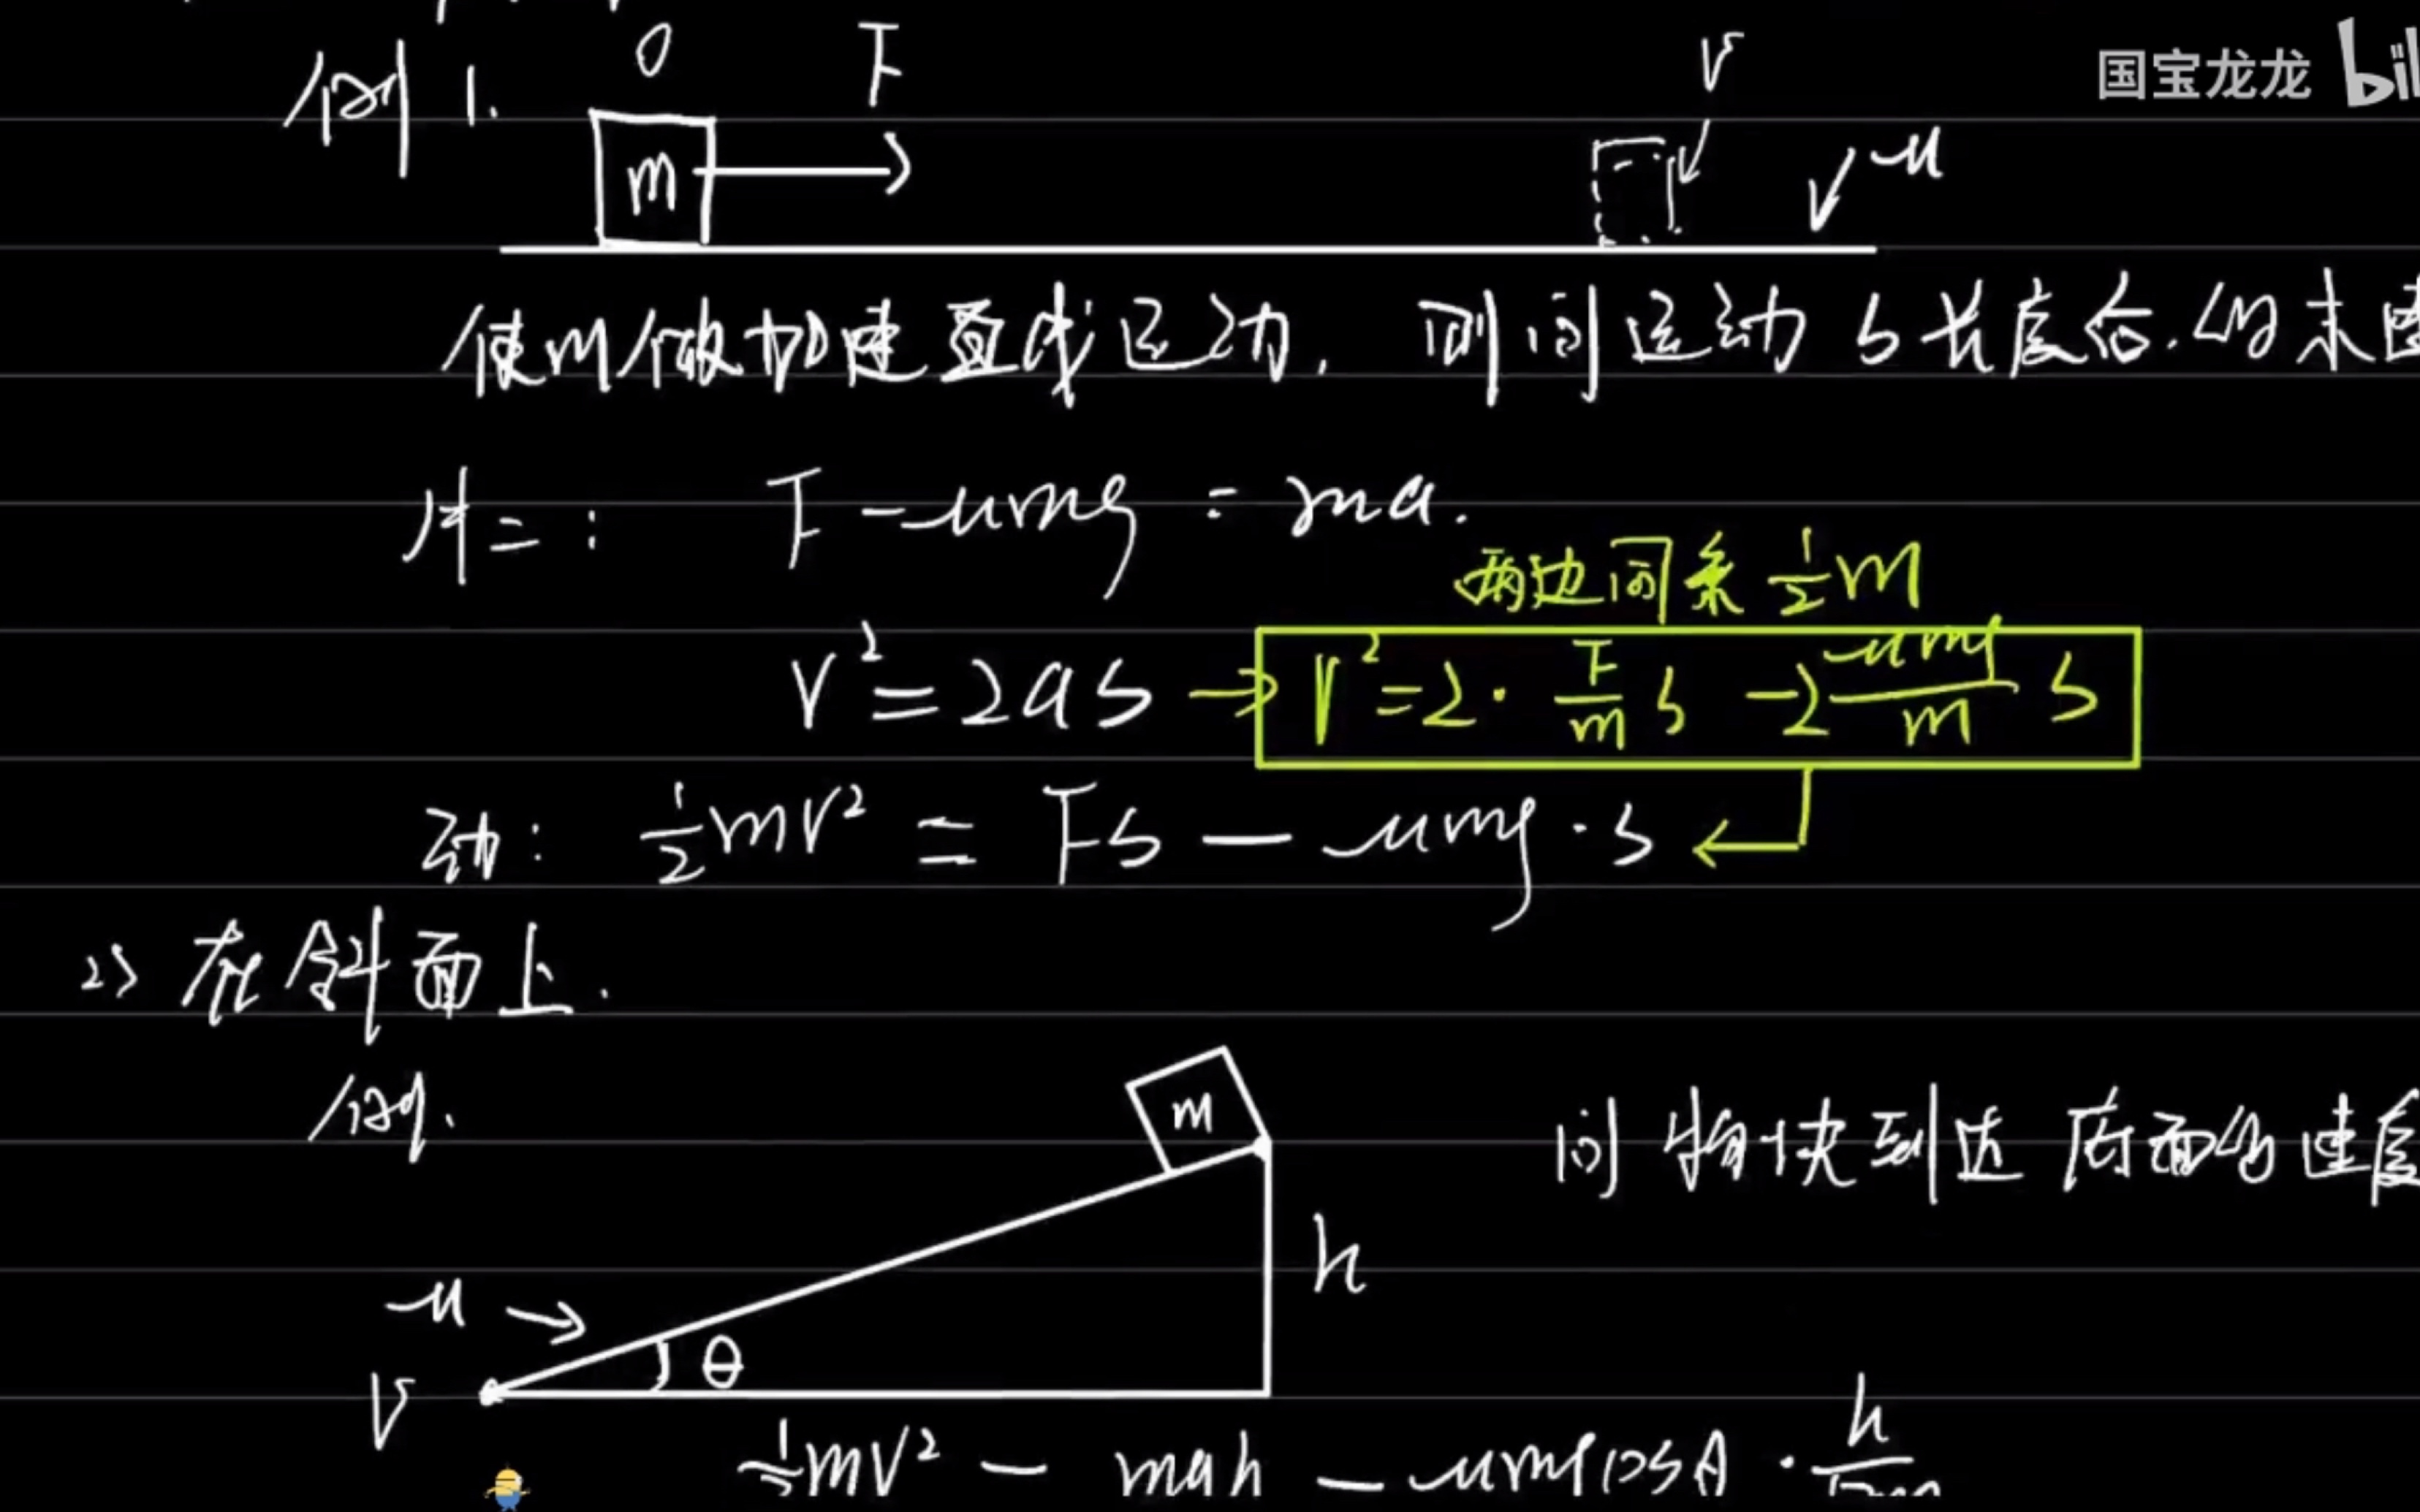 国宝龙龙 bil
例1.
0 F V
m μ
使m做加速直线运动, 则问运动 s 长度后.的末速
牛二: F - μmg = ma.
两边同乘 1/2 m
V² = 2as → V² = 2· F/m s - 2 μmg/m s
动: 1/2 mV² = Fs - μmg·s
2> 在斜面上.
例.
m
问 物块到达 底面的速度
h
μ →
θ
V
1/2 mV² = mgh - μmg cosθ · h/